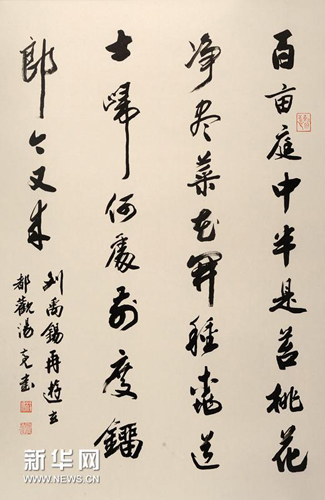 百亩庭中半是苔桃花
净尽菜花開種桃道
士歸何處前度鐂
郎今又来
刘禹锡再遊玄
都觀湯克书
新华网
WWW.NEWS.CN